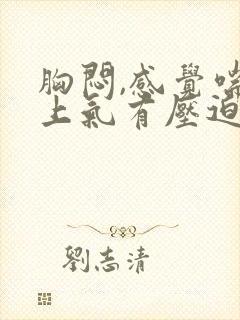 胸悶,感覺喘
上氣有壓迫
劉志清